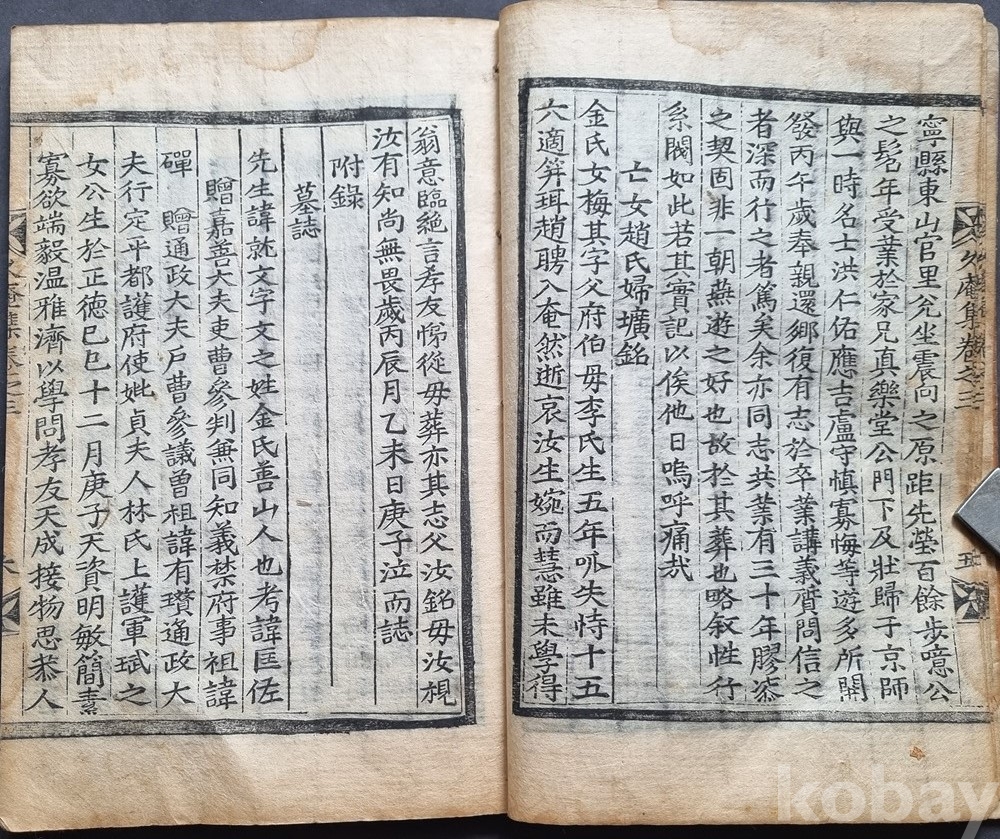 寧縣東山官里兊坐震向之原距先塋百餘步噫公
之髫年受業於家兄真樂堂公門下及壯歸于京師
與一時名士洪仁佑應吉盧守慎寡悔等遊多所開
發丙午歲奉親還鄉復有志於卒業講義質問信之
者深而行之者篤矣余亦同志共業有三十年膠漆
之契固非一朝燕遊之好也故於其葬也略敘性行
系閥如此若其實記以俟他日嗚呼痛哉
亡女趙氏婦壙銘
金氏女梅其字父府伯毋李氏生五年叺失恃十五
六適筓珥趙聘入奄然逝哀汝生婉而慧雖未學得
翁意臨絶言孝友悌從毋葬亦其志父汝銘毋汝梘
汝有知尚無畏歲丙辰月乙未日庚子泣而誌
附錄
墓誌
先生諱就文字文之姓金氏善山人也考諱匡佐
贈嘉善大夫吏曹參判兼同知義禁府事祖諱
磾 贈通政大夫戶曹參議曾祖諱有瓚通政大
夫行定平都護府使妣貞夫人林氏上護軍珷之
女公生於正德巳巳十二月庚子天資明敏簡素
寡欲端毅温雅濟以學問孝友天成接物思恭人
久庵集卷之二
五
kobay